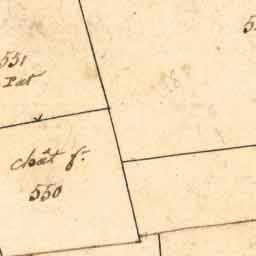 551
Pat
chât fr.
550